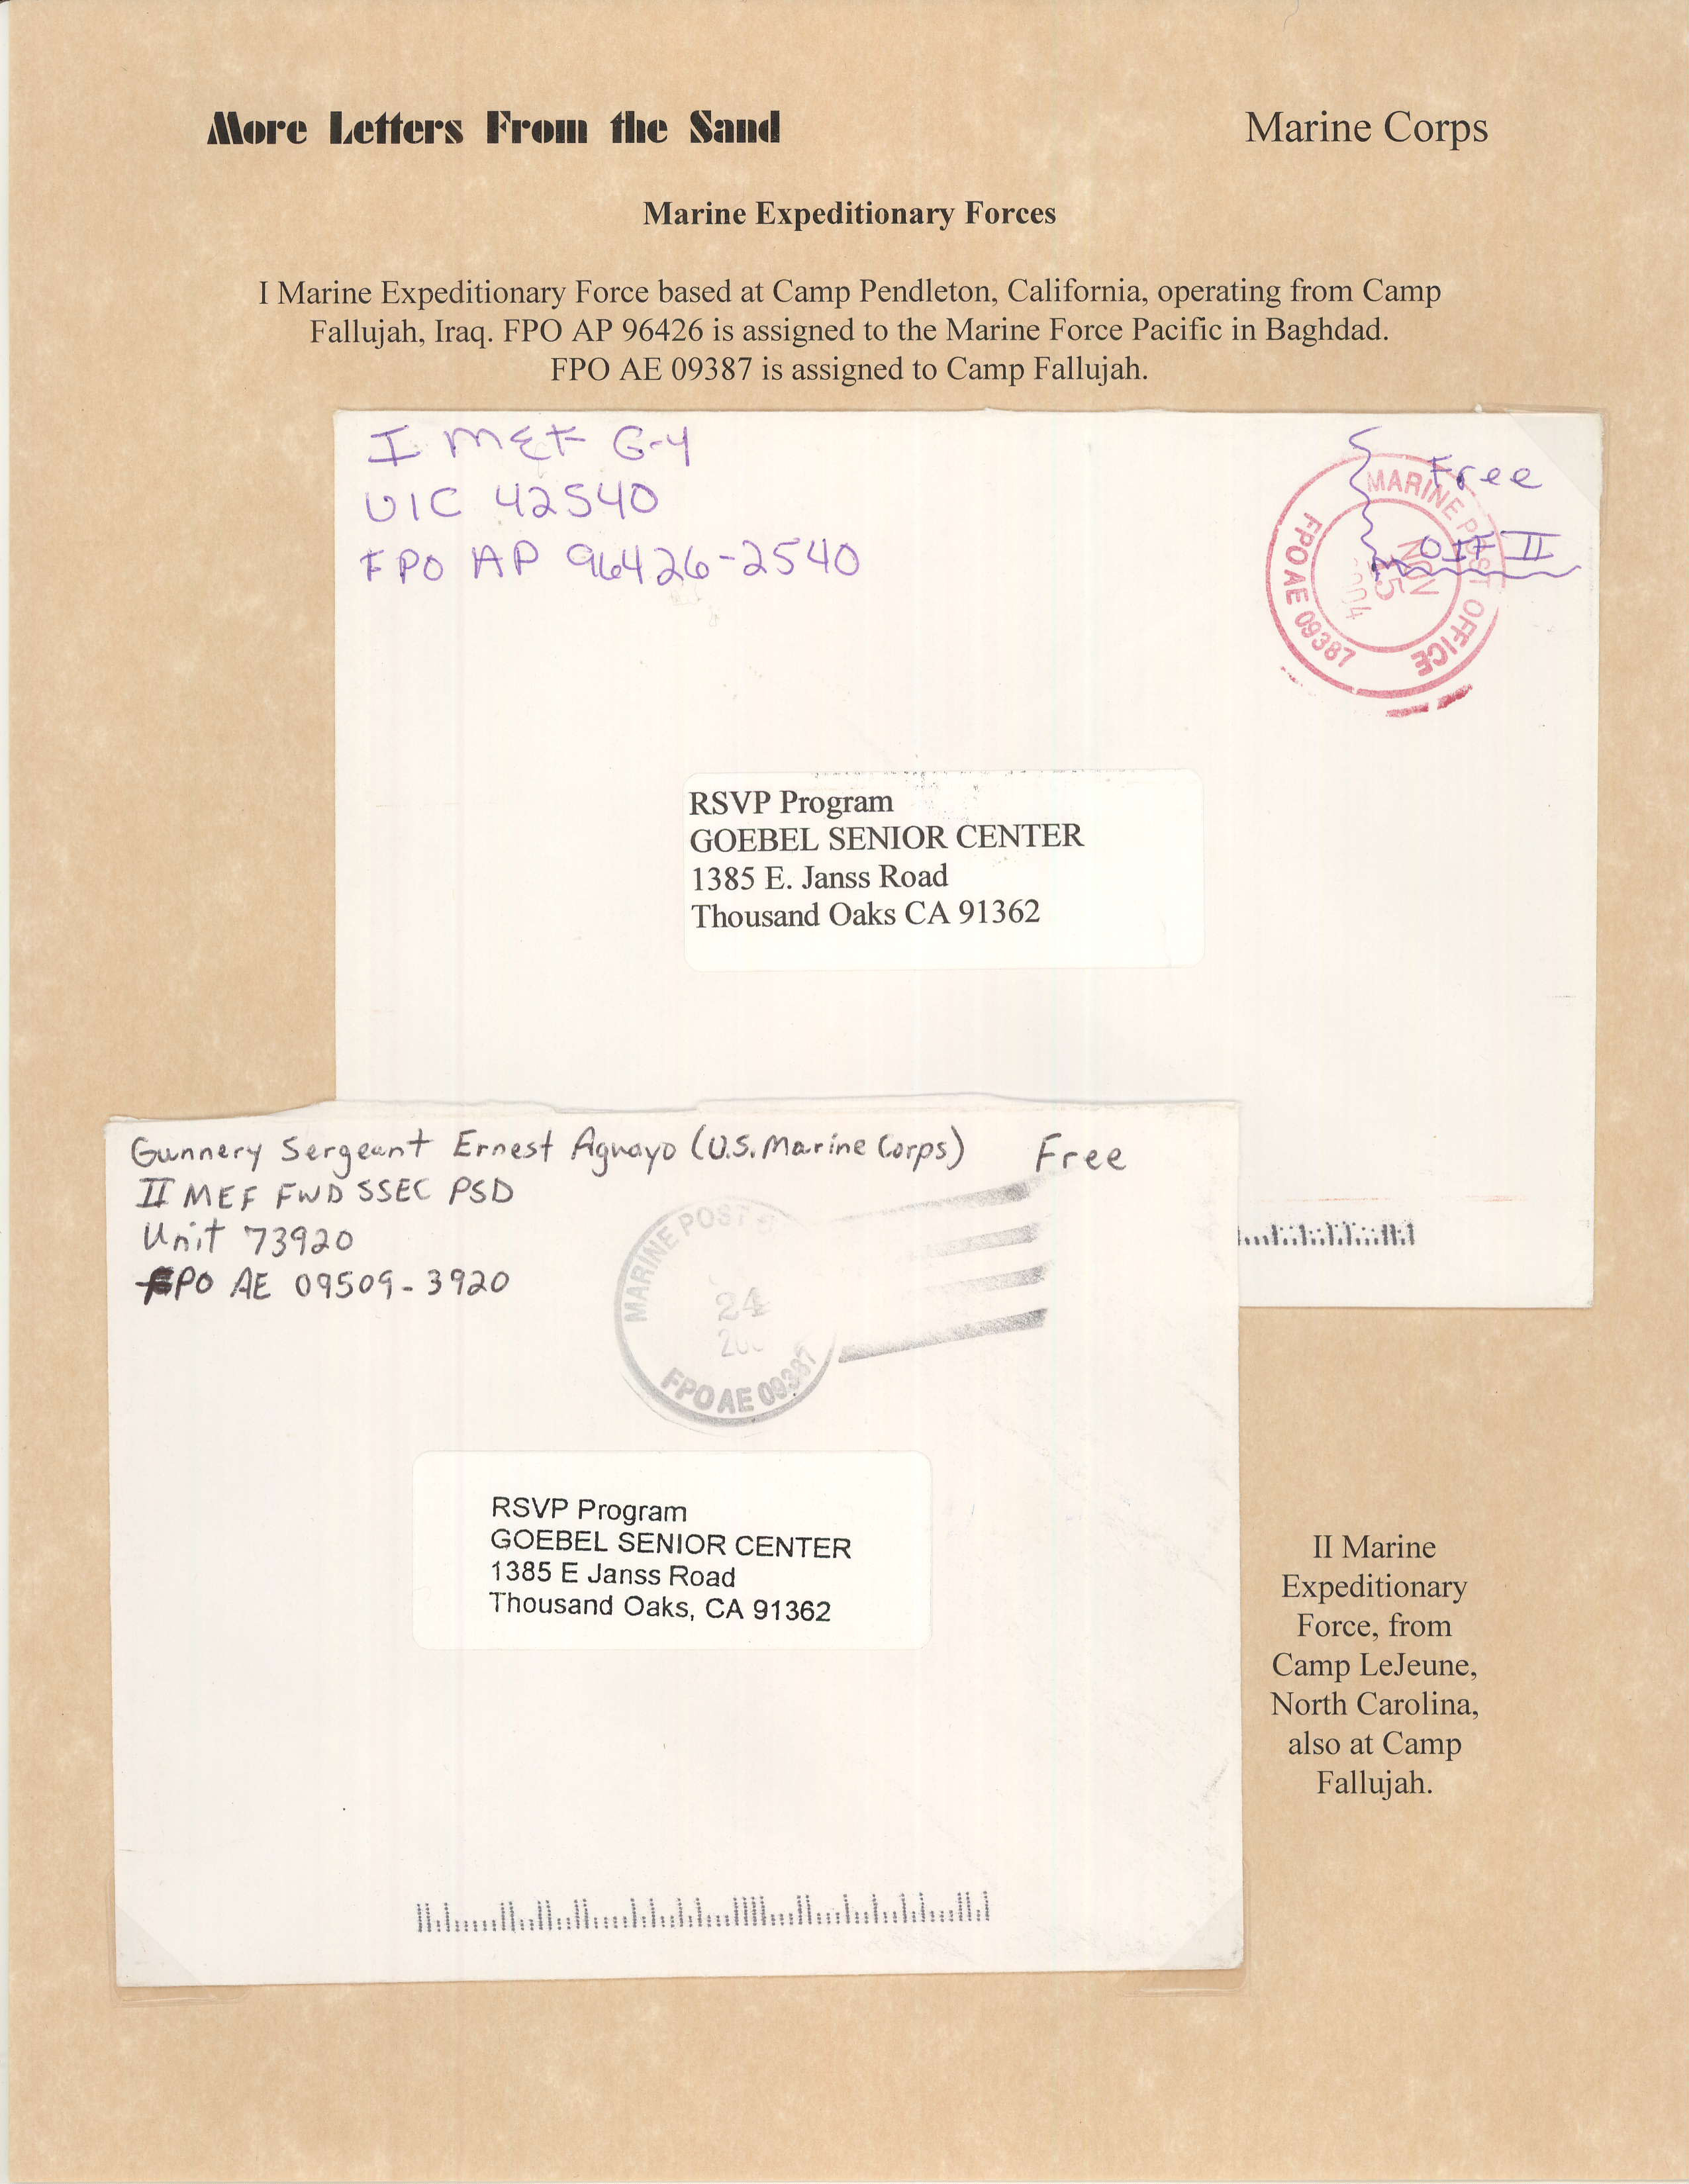 More Letters From the Sand
Marine Corps
Marine Expeditionary Forces
I Marine Expeditionary Force based at Camp Pendleton, California, operating from Camp
Fallujah, Iraq. FPO AP 96426 is assigned to the Marine Force Pacific in Baghdad.
FPO AE 09387 is assigned to Camp Fallujah.
I MEF G-4
UIC 42540
FPO AP 96426-2540
Free
OIF II
MARINE POST OFFICE
NOV
FPO AE 09387
RSVP Program
GOEBEL SENIOR CENTER
1385 E. Janss Road
Thousand Oaks CA 91362
Gunnery Sergeant Ernest Aguayo (U.S. Marine Corps)
Free
II MEF FWD SSEC PSD
Unit 73920
FPO AE 09509-3920
MARINE POST
24
FPO AE 09387
RSVP Program
GOEBEL SENIOR CENTER
1385 E Janss Road
Thousand Oaks, CA 91362
II Marine
Expeditionary
Force, from
Camp LeJeune,
North Carolina,
also at Camp
Fallujah.